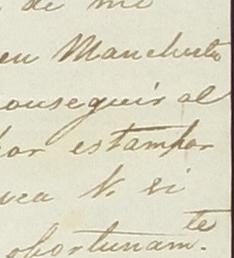 de me
en Manchuto
conseguir al
por estampar
uca N. si
oportunam.te